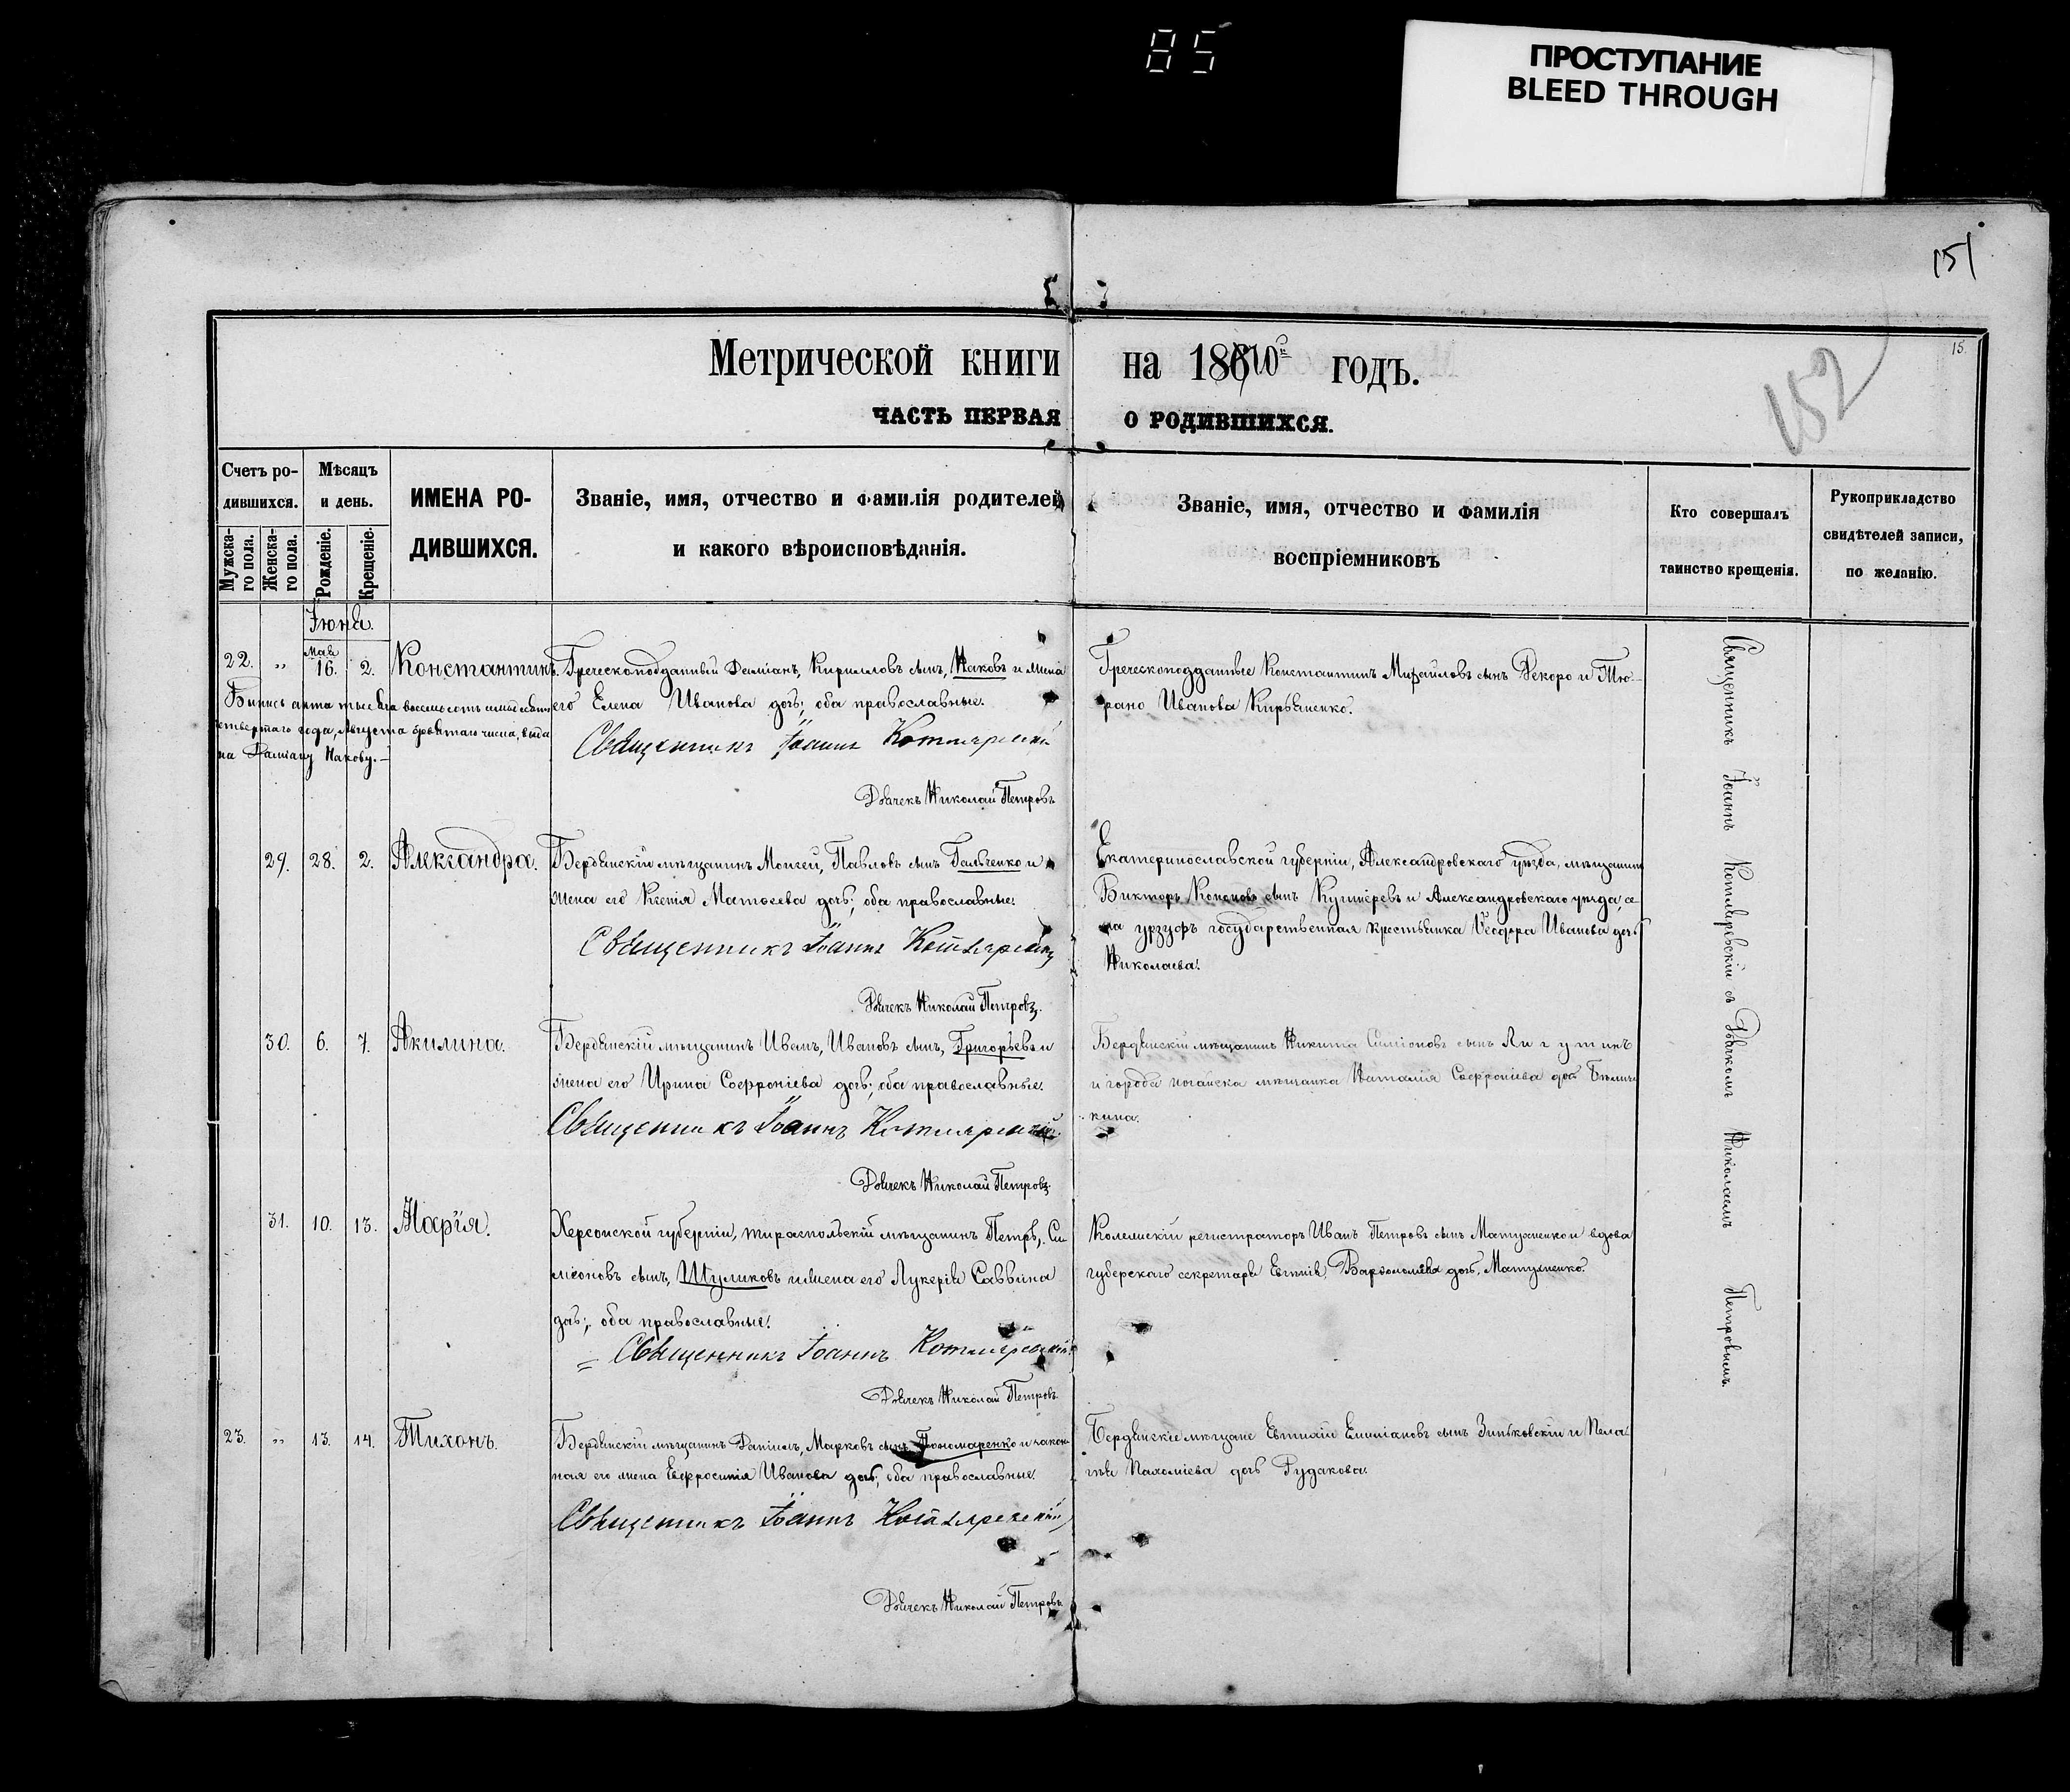 85
ПРОСТУПАНИЕ
BLEED THROUGH
151
15.
152
Метрической книги на 1870 годъ.
ЧАСТЬ ПЕРВАЯ О РОДИВШИХСЯ.
Счетъ ро-
дившихся.
Мужска-
го пола.
Женска-
го пола.
Мѣсяцъ
и день.
Рожденіе.
Крещеніе.
ИМЕНА РО-
ДИВШИХСЯ.
Званіе, имя, отчество и фамилія родителей
и какого вѣроисповѣданія.
Званіе, имя, отчество и фамилія
воспріемниковъ
Кто совершалъ
таинство крещенія.
Рукоприкладство
свидѣтелей записи,
по желанію.
Іюня.
22. „ Мая 16. 2. Константинъ.
Греческоподданный Даміанъ, Кирилловъ сынъ, Наковъ и жена
его Елена Ивановна дочь; оба православные.
Священникъ Іоаннъ Котляревскій
Дьячекъ Николай Петровъ
Года, Августа числа, выда
на Даміану Накову.—
Греческоподданные Константинъ Михайловъ сынъ Рекоро и
Иванова Кирьяненко.
29. 28. 2. Александра.
Бердянскій мѣщанинъ Моисей, Павловъ сынъ Гальченко и
жена его Ксенія Матѳеева дочь; оба православные.
Священникъ Іоаннъ Котляревскій
Дьячекъ Николай Петровъ.
Екатеринославской губерніи, Александровскаго уѣзда, мѣщанинъ
Викторъ Кононовъ сынъ и Александровскаго уѣзда, се-
ла урзуфъ государственная крестьянка Ѳеодора Иванова дочь
Николаева.
30. 6. 7. Акилина.
Бердянскій мѣщанинъ Иванъ, Ивановъ сынъ, Григорьевъ и
жена его Ирина Софроніева дочь; оба православные.
Священникъ Іоаннъ Котляревскій
Дьячекъ Николай Петровъ.
Бердянскій мѣщанинъ Никита Симіоновъ сынъ Лигутинъ
и города ногайска мѣщанка Наталія Софроніева дочь
кина.
31. 10. 13. Марія.
Херсонской губерніи, тираспольскій мѣщанинъ Петръ, Си
міоновъ сынъ, Шуликовъ и жена его Лукерія Саввина
дочь; оба православные.
Священникъ Іоаннъ Котляревскій
Дьячекъ Николай Петровъ.
Колежскій регистраторъ Иванъ Петровъ сынъ Матушенко и вдова
губерскаго секретаря Евгенія, Варѳоломѣева дочь, Матушенко.
23. „ 13. 14. Тихонъ.
Бердянскій мѣщанинъ Даніилъ, Марковъ сынъ Пономаренко и закон
ная его жена Евфросинія Иванова дочь; оба православные.
Священникъ Іоаннъ Котляревскій
Дьячекъ Николай Петровъ.
Бердянскіе мѣщане Евтихій Емиліановъ сынъ Зиньковскій и Пела-
гѣя Пахоміева дочь Рудакова.
Священникъ Іоаннъ Котляревскій съ Дьячкомъ Николаемъ Петровымъ.